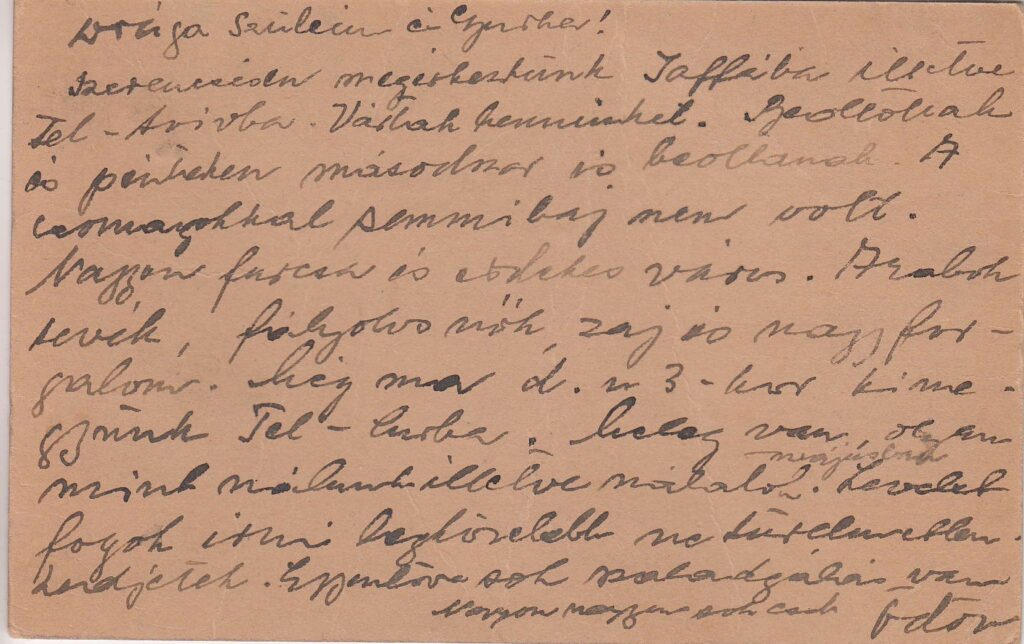 Drága Szüleim és Gyurka!
Szerencsésen megérkeztünk Jaffába illetve
Tel-Avivba. Vártak bennünket. Beoltottak
és pénteken másodszor is beoltanak. A
csomagokkal semmi baj nem volt.
Nagyon furcsa és érdekes város. Arabok
tevék, fátyolos nők, zaj és nagy for-
galom. Még ma d. u 3-kor kime-
gyünk Tel-   . Meleg van, olyan
májusban
mint nálunk illetve nálatok. Levelet
fogok írni legközelebb ne türelmetlen-
kedjetek. Egyenlőre sok szaladgálás van
Nagyon nagyon sok csók
Ödön